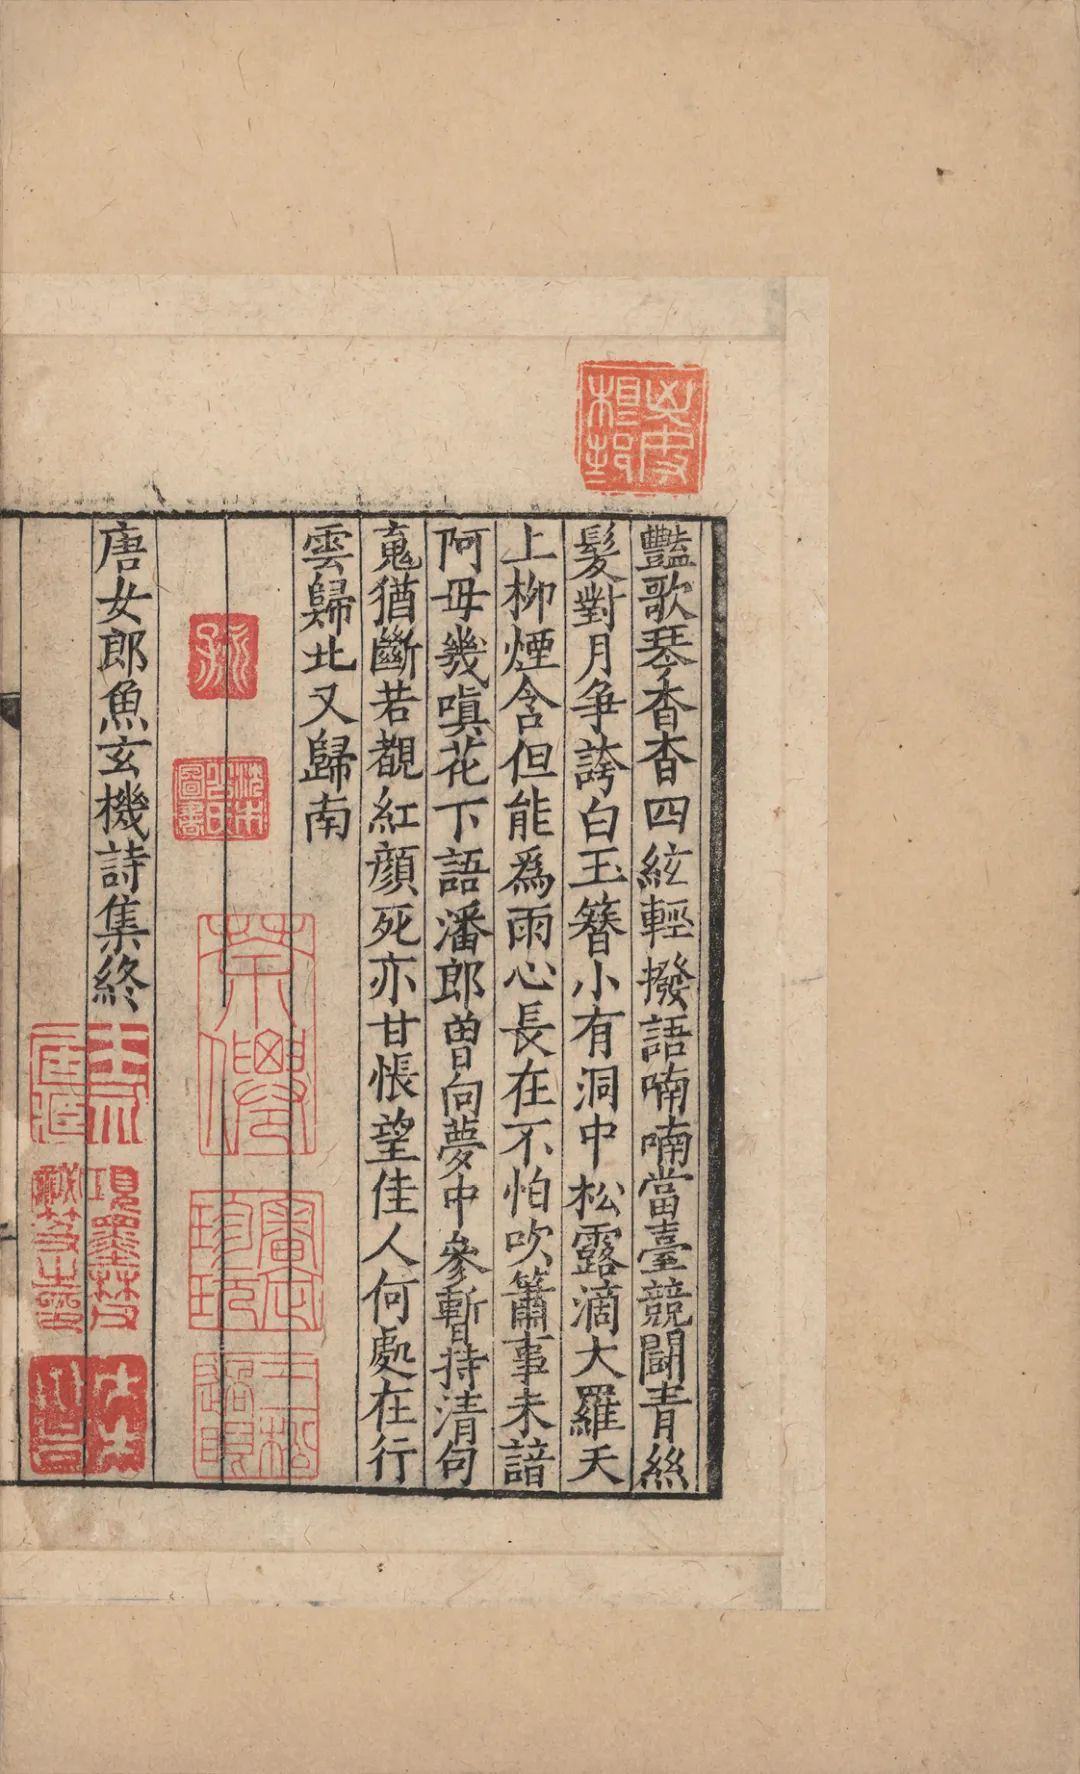 豔歌琴杳杳四絃輕撥語喃喃當臺競鬬青絲
髮對月爭誇白玉簪小有洞中松露滴大羅天
上柳煙含但能爲雨心長在不怕吹簫事未諳
阿母幾嗔花下語潘郎曾向夢中參暫持清句
䰟猶斷若覩紅顏死亦甘悵望佳人何處在行
雲歸北又歸南
唐女郎魚玄機詩集終